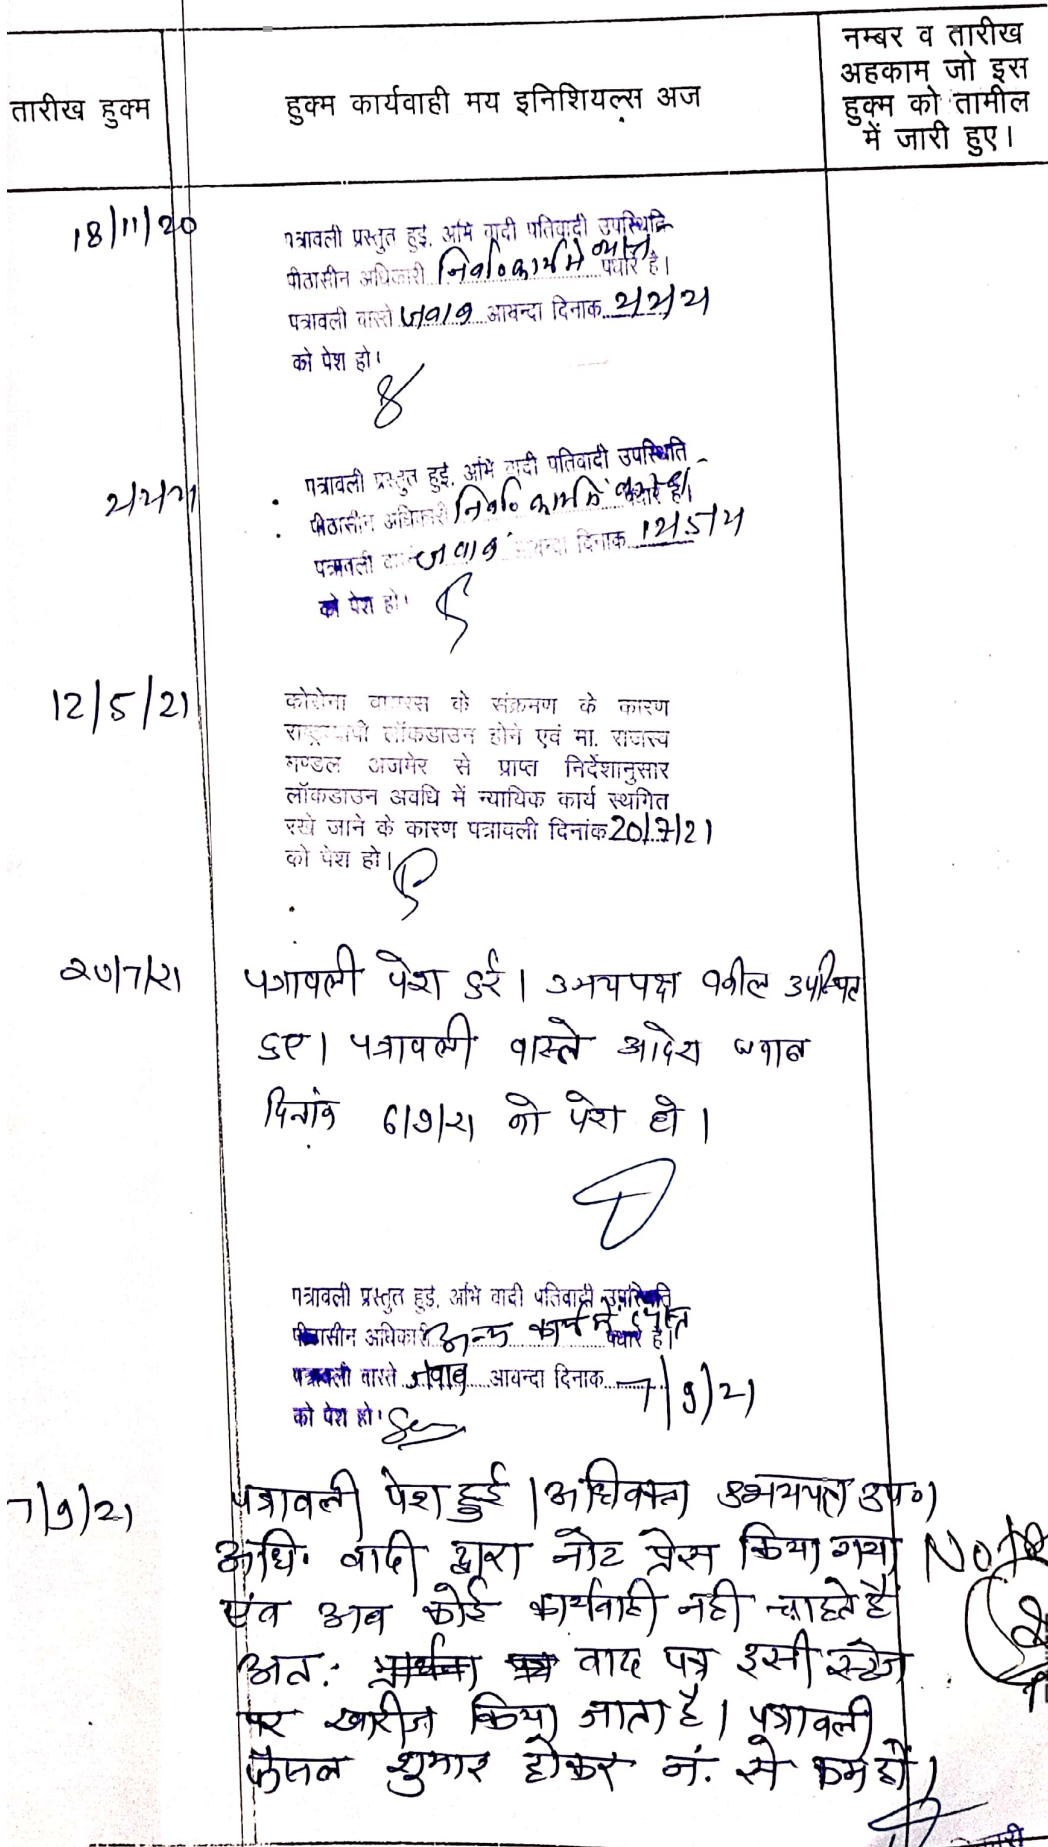 तारीख हुक्म
हुक्म कार्यवाही मय इनिशियल्स अज
नम्बर व तारीख
अहकाम जो इस
हुक्म को तामील
में जारी हुए।
18/11/20
पत्रावली प्रस्तुत हुई. अभि वादी पतिवादी उपस्थिति
पीठासीन अधिकारी निर्वा० कार्य मे व्यस्त पधारे है।
पत्रावली वास्ते जवाब आयन्दा दिनाक 2/2/21
को पेश हो।
2/2/21
पत्रावली प्रस्तुत हुई. अभि वादी पतिवादी उपस्थिति
पीठासीन अधिकारी निर्वा० कार्य मे व्यस्त पधारे है।
पत्रावली वास्ते जवाब आयन्दा दिनाक 12/5/21
को पेश हो।
12/5/21
कोरोना वायरस के संक्रमण के कारण
राष्ट्रव्यापी लॉकडाउन होने एवं मा. राजस्व
मण्डल अजमेर से प्राप्त निर्देशानुसार
लॉकडाउन अवधि में न्यायिक कार्य स्थगित
रखे जाने के कारण पत्रावली दिनांक 20/7/21
को पेश हो।
20/7/21
पत्रावली पेश हुई। उभयपक्ष वकील उपस्थित
हुए। पत्रावली वास्ते आदेश जवाब
दिनांक 6/9/21 को पेश हो।
पत्रावली प्रस्तुत हुई. अभि वादी पतिवादी उपस्थिति
पीठासीन अधिकारी अन्य कार्य मे व्यस्त पधारे है।
पत्रावली वास्ते जवाब आयन्दा दिनाक 7/9/21
को पेश हो।
7/9/21
पत्रावली पेश हुई। अधिवक्ता उभयपक्ष उप०।
अधि. वादी द्वारा नोट प्रेस किया गया
एंव अब कोई कार्यवाही नही चाहते है
अत: प्रार्थना पत्र वाद पत्र इसी स्टेज
पर खारीज किया जाता है। पत्रावली
फैसल शुमार होकर नं. से कम हो।